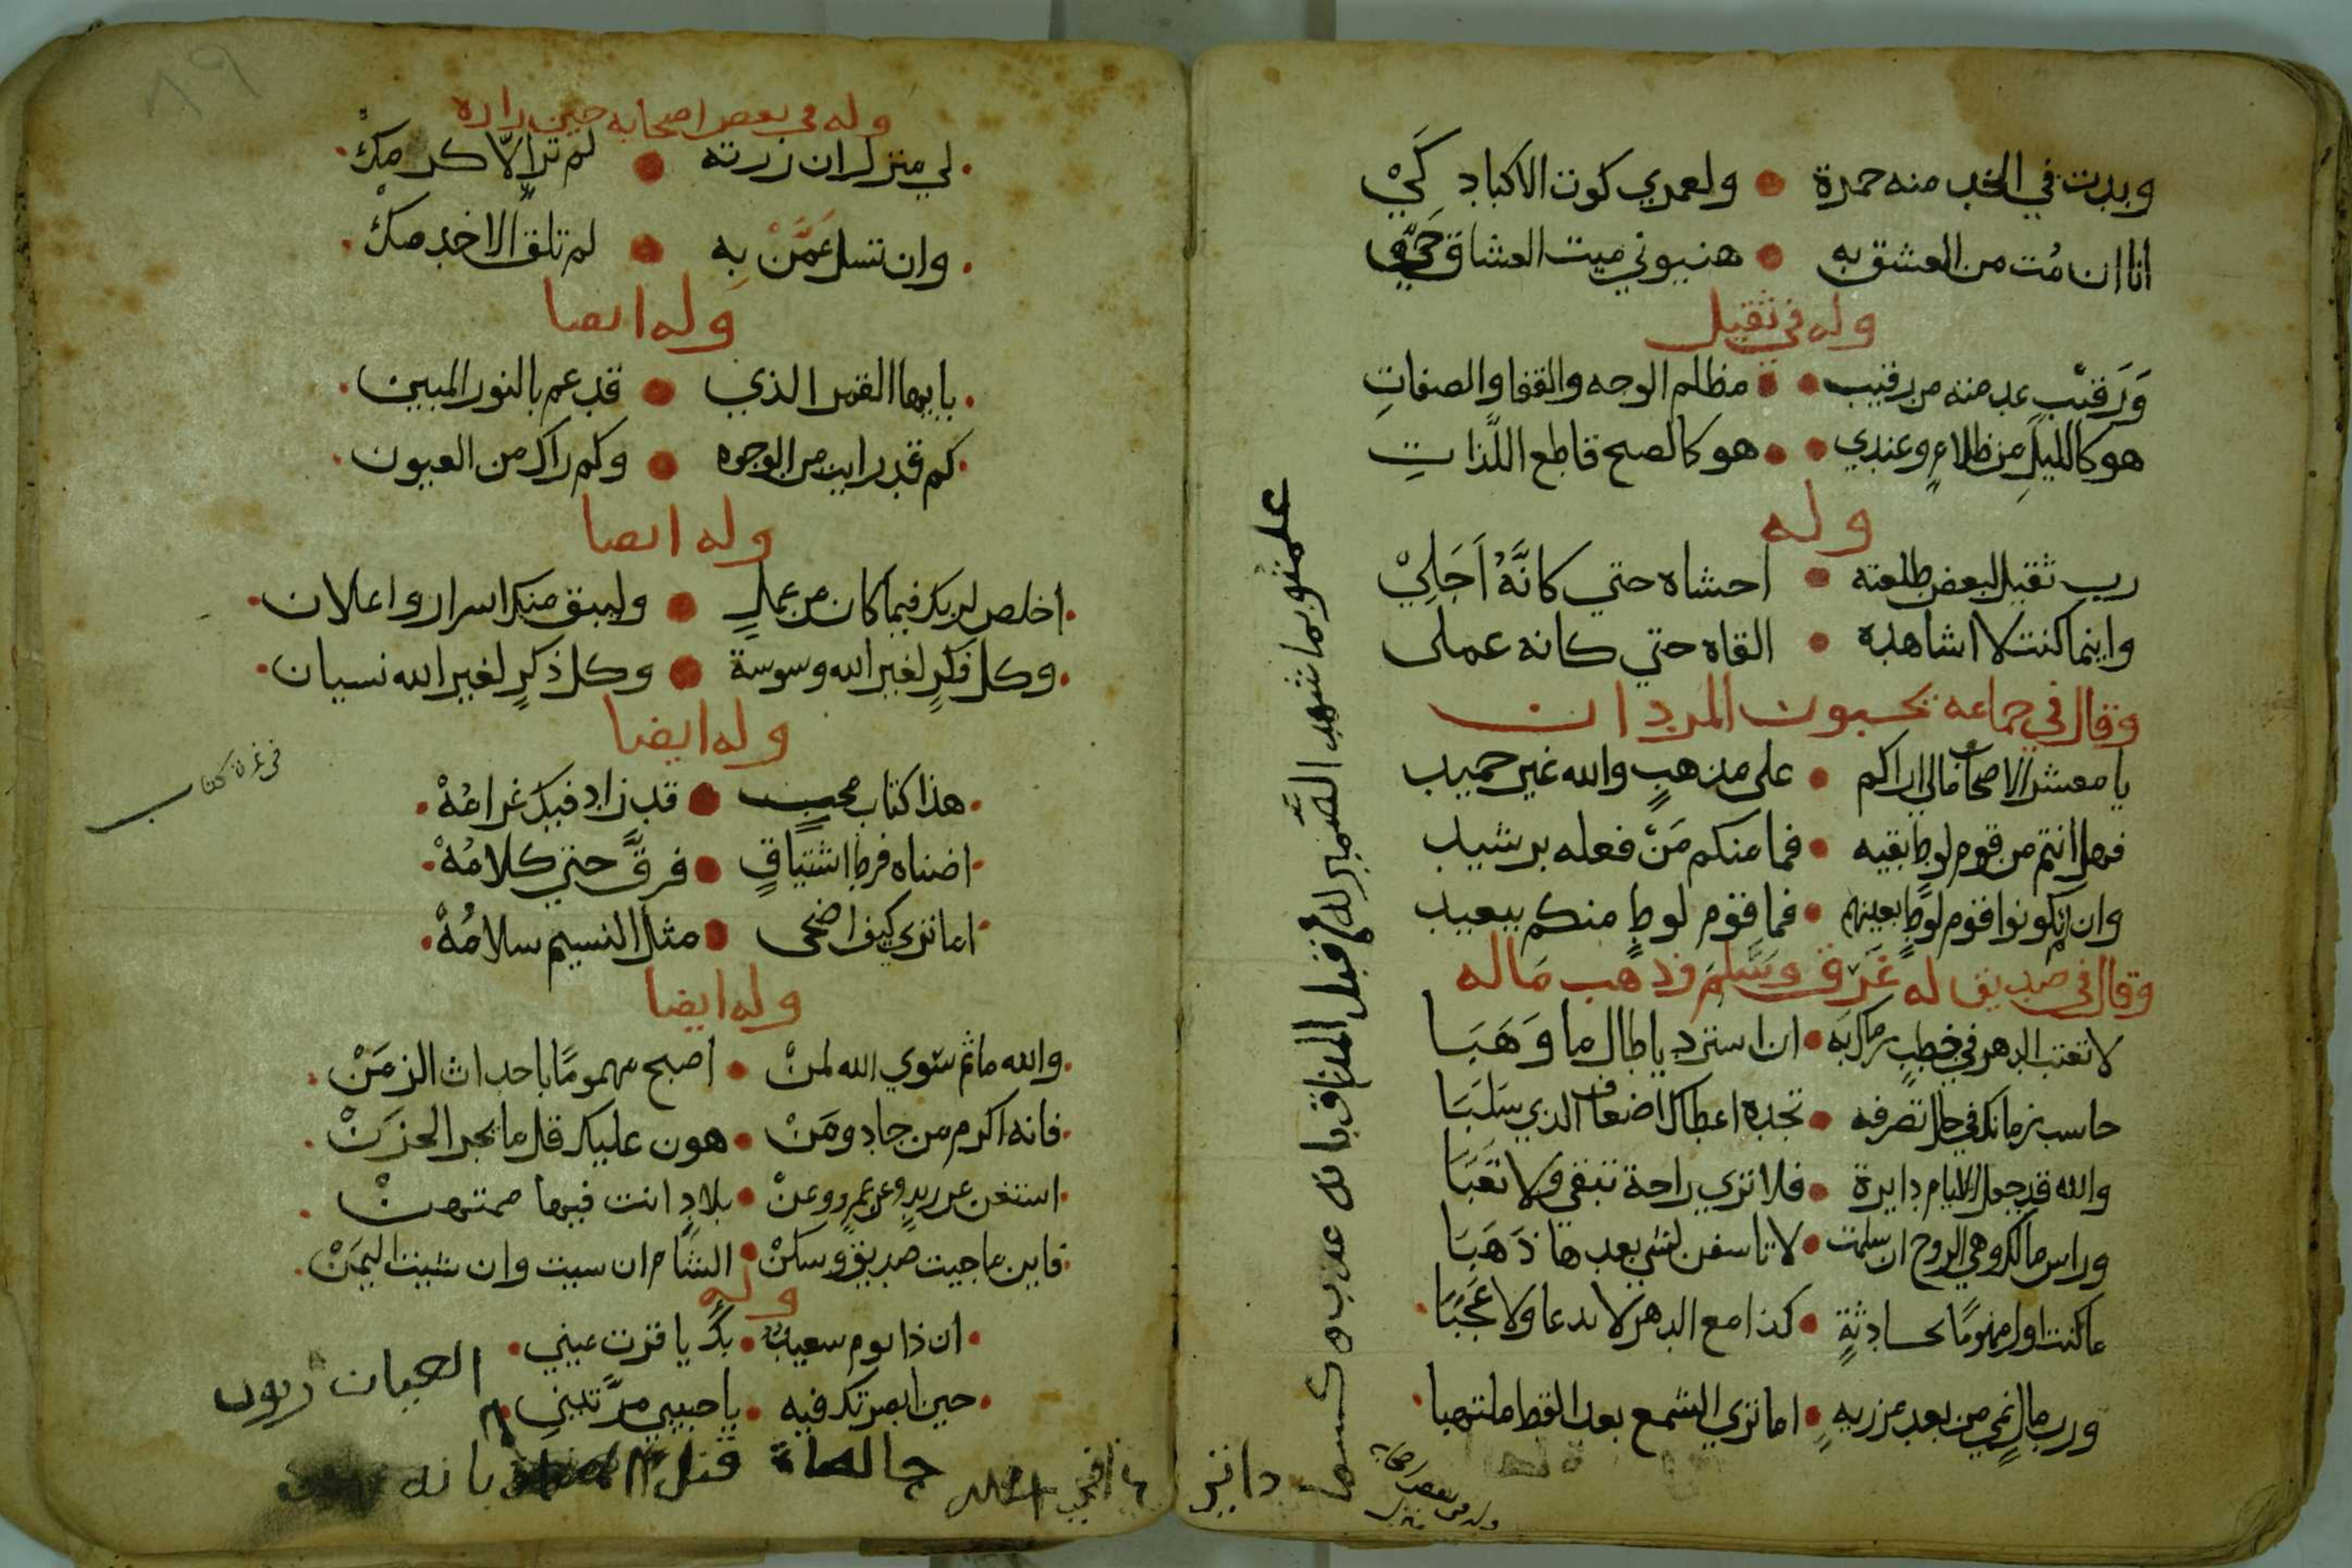 وبدت في الخد منه حمرة • ولعمري كوت الاكباد كَيْ
انا ان مُت من العشق به • هنيوني ميت العشاق حَيّ
وله في ثقيل
وَرَقيْبٍ عدمته من رقيب • مظلم الوجه والقفا والصفاتِ
هو كالليلِ من ظلامٍ وعندي • هو كالصبح قاطع اللَّذاتِ
وله
رب ثقيل لبعض طلعته • احشاه حتي كانَّهُ اَجَلِيْ
واينما كنت لا اشاهده • القاه حتي كانه عملى
وقال في جماعه يحبون المردان
يا معشر الاصحاب مالي اراكم • على مذهبٍ والله غير حميد
فهل انتم من قوم لوطٍ بقيه • فما منكم مَنْ فعله برشيد
وان لم تكونوا قوم لوطٍ بعينهم • فما قوم لوطٍ منكم ببعيد
وقال في صديق له غَرَق وسَلِمَ وذهب مَاله
لا تعتب الدهر في خطبٍ رماك به • ان استرد ياطال ما وَهَبَا
حاسب زمانك في حال تصرفه • تجده اعطاك اضعاف الذي سَلَبَا
والله قد جعل الايام دايرة • فلا تري راحة تبقي ولا تعَبَا
وراس مالك وهي الروح ان سلمت • لا تاسفن لشي بعدها ذَهَبَا
ما كنت اول مهمومًا بحادثةٍ • كذا مع الدهر لا بدعا ولا عَجَبَا
ورب مالٍ نمي من بعد مرزيهٍ • اما تري الشمع بعد القط ملتهبا
وله في بعض اصحابه
علمتهو بما شهد الضمير له قبل المذاق بانه عذب
وله في بعض اصحابه حين زاره
لي منزل ان زرته • لم تر الّا كرمِكْ
وان تسل عَمَّنْ بِه • لم تلق الا خدمكْ
وله ايضا
يا ايها القمر الذي • قد عم بالنور المبين
كم قد رايت من الوجوه • وكم راك من العيون
وله ايضا
اخلص لربك فيما كان من عملٍ • وليبق منك اسرار واعلان
وكل فكرٍ لغير الله وسوسة • وكل ذكرٍ لغير الله نسيان
وله ايضا
هذا كتاب محبٍ • قد زاد فيك غرامُهْ
اضناه فرط اشتياقٍ • فرقَّ حتي كلامُهْ
اما تري كيف اضحى • مثل النسيم سلامُهْ
وله ايضا
والله ما ثم سوي الله لمنْ • اصبح مهمومًا باحداث الزمَنْ
فانه اكرم من جاد ومَنْ • هون عليك قل ما يجر الحزَنْ
استغن عن زيدٍ وعن عمرٍو وعنْ • بلادٍ انت فيها ممتهنْ
فاين ما جيت صديق وسكنْ • الشام ان سيت وان شيت اليمَنْ
وله
ان ذا يوم سعيدٌ • بكَ يا قرت عيني
حين ابصرتك فيه • يا حبيبي مرَّتينِ
قتل
بانه